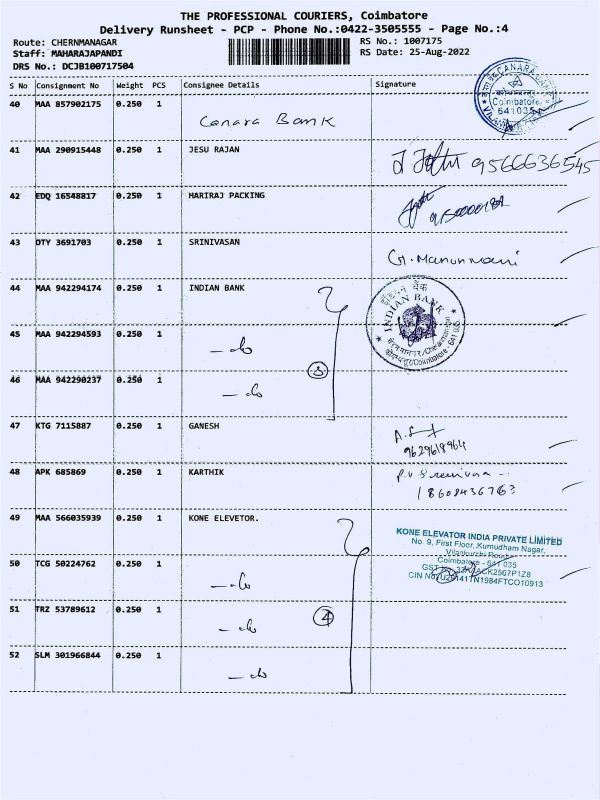 THE PROFESSIONAL COURIERS, Coimbatore
Delivery Runsheet - PCP - Phone No.:0422-3505555 - Page No.:4
Route: CHERNMANAGAR
RS No.: 1007175
Staff: MAHARAJAPANDI
RS Date: 25-Aug-2022
DRS No.: DCJB100717504
S No Consignment No Weight PCS Consignee Details Signature
40 MAA 857902175 0.250 1
Canara Bank
CANARA BANK
Coimbatore
641035
41 MAA 290915448 0.250 1 JESU RAJAN
9566636545
42 EDQ 16548817 0.250 1 HARIRAJ PACKING
43 OTY 3691703 0.250 1 SRINIVASAN
44 MAA 942294174 0.250 1 INDIAN BANK
इंडियन बैंक
INDIAN BANK
Coimbatore - 641 035
45 MAA 942294593 0.250 1
- do
46 MAA 942290237 0.250 1
- do
3
47 KTG 7115887 0.250 1 GANESH
9629618964
48 APK 685869 0.250 1 KARTHIK
49 MAA 566035939 0.250 1 KONE ELEVETOR.
KONE ELEVATOR INDIA PRIVATE LIMITED
No. 9, First Floor, Kumudham Nagar,
Vilankurichi Road
Coimbatore - 641 035
50 TCG 50224762 0.250 1
- do
51 TRZ 53789612 0.250 1
- do
4
52 SLM 301966844 0.250 1
- do